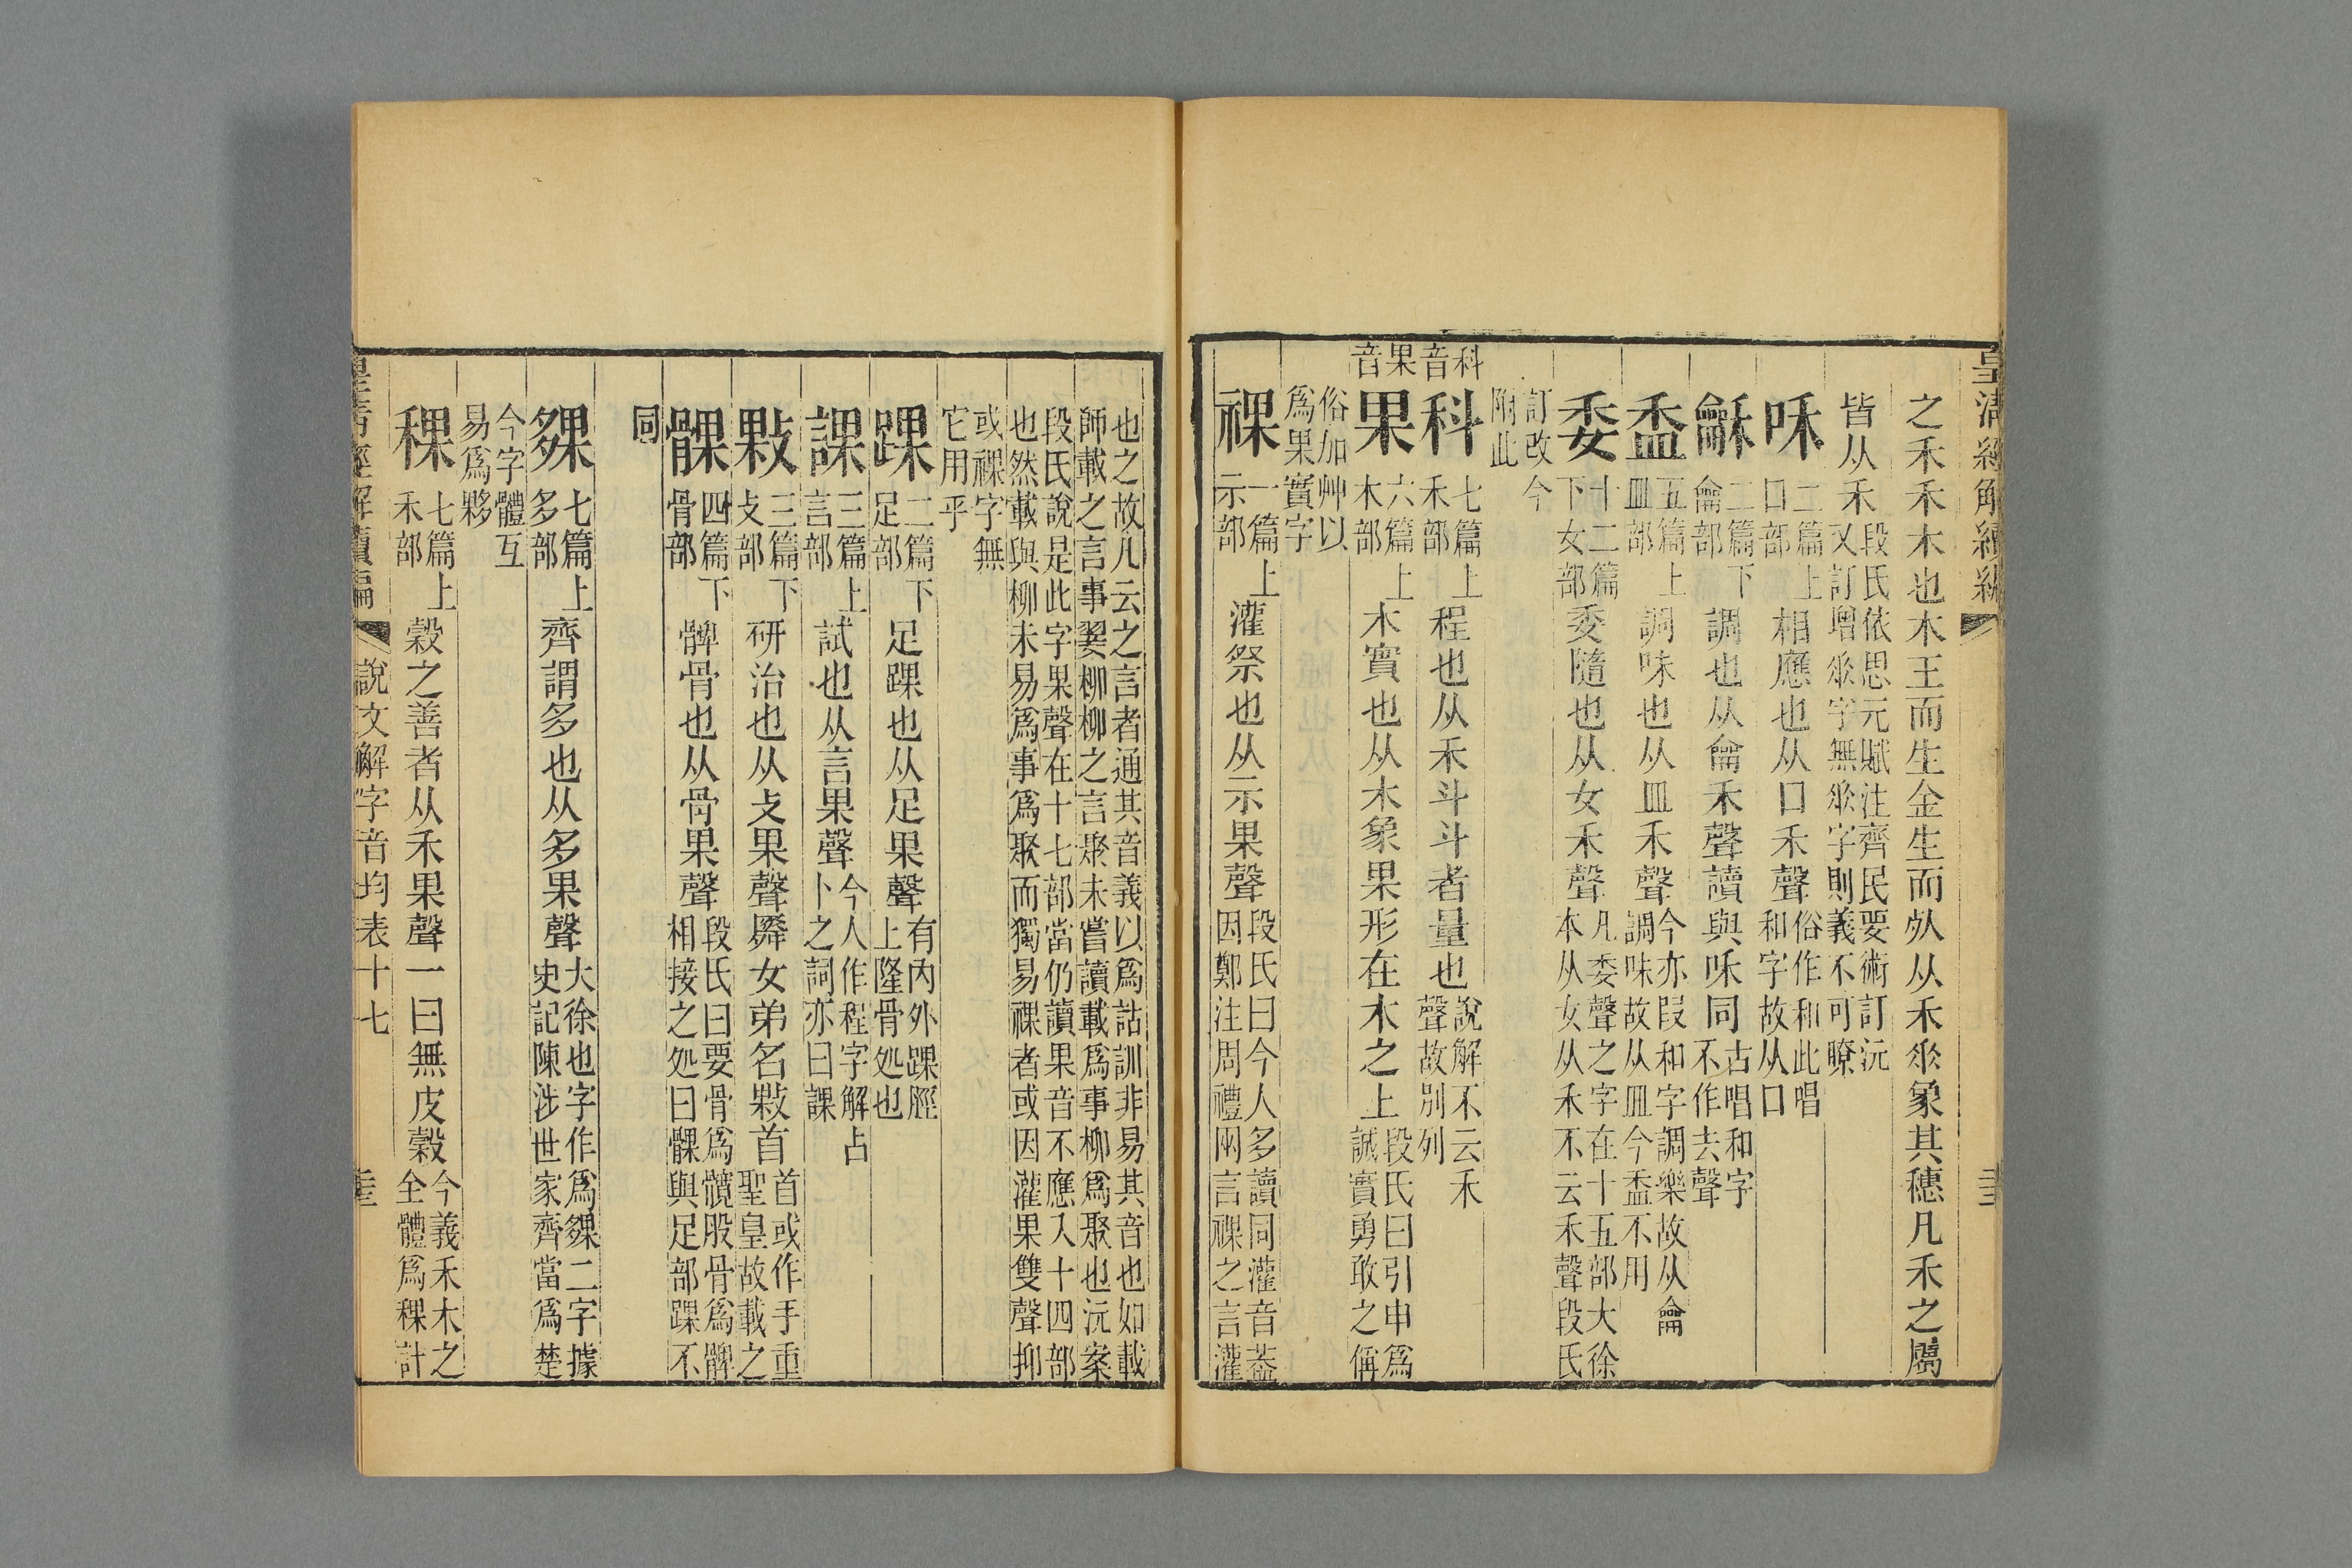 皇清經解續編
之禾禾木也木王而生金生而𣦸从禾𠂹象其穗凡禾之屬
皆从禾段氏依思元賦注齊民要術訂沅
又訂增𠂹字無𠂹字則義不可瞭
咊二篇上口部相應也从口禾聲俗作和此唱
和字故从口
龢二篇下龠部調也从龠禾聲讀與咊同古唱和字
不作去聲
盉五篇上皿部調味也从皿禾聲今亦叚和字調樂故从龠
調味故从皿今盉不用
委十二篇下女部委隨也从女禾聲凡委聲之字在十五部大徐
本从女从禾不云禾聲段氏
訂改今
附此
科音
科七篇上禾部程也从禾斗斗者量也說解不云禾
聲故別列
果音
果六篇上木部木實也从木象果形在木之上段氏曰引申爲
誠實勇敢之偁
俗加艸以
爲果實字
祼一篇上示部灌祭也从示果聲段氏曰今人多讀同灌音葢
因鄭注周禮兩言祼之言灌
也之故凡云之言者通其音義以爲詁訓非易其音也如載
師載之言事翣柳柳之言聚未嘗讀載爲事柳爲聚也沅案
段氏說是此字果聲在十七部當仍讀果音不應入十四部
也然載與柳未易爲事爲聚而獨易祼者或因灌果雙聲抑
或祼字無
它用乎
踝二篇下足部足踝也从足果聲有內外踝脛
上隆骨処也
課三篇上言部試也从言果聲今人作程字解占
卜之詞亦曰課
敤三篇下攴部研治也从攴果聲舜女弟名敤首首或作手重
聖皇故載之
髁四篇下骨部髀骨也从骨果聲段氏曰要骨爲髖股骨爲髀
相接之処曰髁與足部踝不
同
夥七篇上多部齊謂多也从多果聲大徐也字作爲夥二字據
史記陳涉世家齊當爲楚
今字體互
易爲夥
稞七篇上禾部穀之善者从禾果聲一曰無皮穀今義禾木之
全體爲稞計
皇清經解續編 說文解字音均表十七